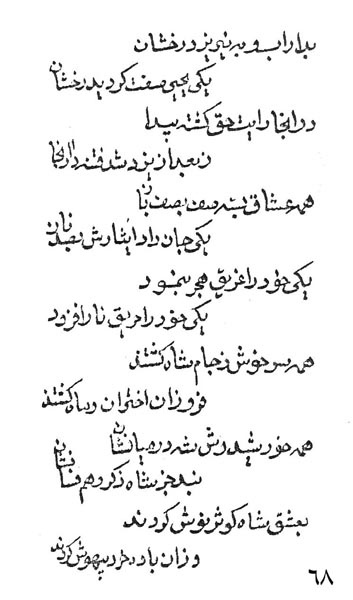 بداراب و به نیریز درخشان
یکی یحیی صفت کردید رخشان
در انجا رایت حق کشته پیدا
ز بعد از یزد شد فتنه در انجا
همه عشاق بسته صف بصف بان
یکی جان داد ایثارش بصد نان
یکی خود را غریق هجر بنمود
یکی خود را حریق نار افزود
همه سرخوش ز جام شاه کشتند
فروزان اختران و ماه کشتند
همه خورشیدرش شه در میانشان
نبد جز شاه ذکر و هم فشانشان
بعشق شاه کوثر نوش کردند
وزان باده خرد بیهوش کردند
٦٨